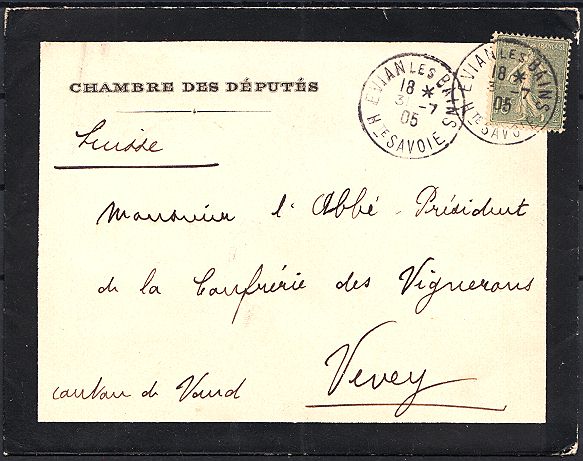 CHAMBRE DES DÉPUTÉS
EVIAN LES BAINS
18 *
31 -7
05
HTE SAVOIE
EVIAN LES BAINS
18 *
3 -7
05
HTE SAVOIE
Suisse
Monsieur l'Abbé-Président
de la Confrérie des Vignerons
Vevey
canton de Vaud